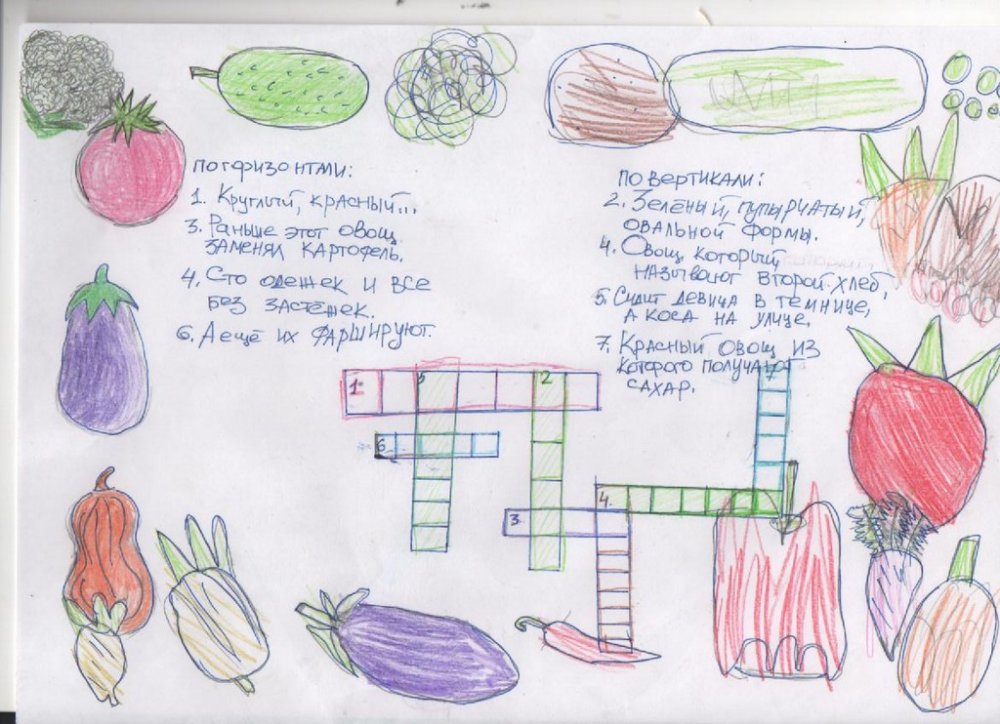 По горизонтали:
1. Круглый, красный...
3. Раньше этот овощ
заменял картофель.
4. Сто одежек и все
без застёжек.
6. А ещё их фаршируют.
По вертикали:
2. Зелёный, пупырчатый,
овальной формы.
4. Овощ который
называют второй хлеб,
5 Сидит девица в темнице,
а коса на улице.
7. Красный овощ из
которого получают
сахар.
1
5
2
7
6
4
3